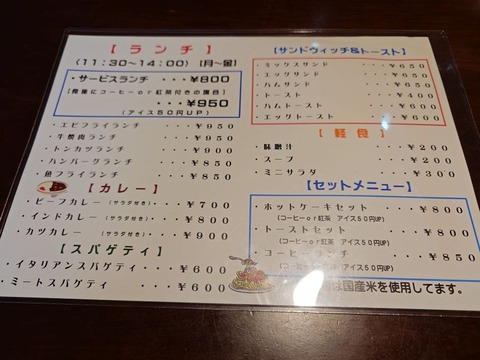 【ランチ】
(11:30~14:00) [月~金]
・サービスランチ ・・・¥800
・・・¥950
(アイス50円UP)
・エビフライランチ ・・・¥950
・牛焼肉ランチ ・・・¥950
・トンカツランチ ・・・¥900
・ハンバーグランチ ・・・¥850
・魚フライランチ ・・・¥850
【カレー】
・ビーフカレー (サラダ付き) ・・・¥700
・インドカレー (サラダ付き) ・・・¥800
・カツカレー (サラダ付き) ・・・¥900
【スパゲティ】
・イタリアンスパゲティ ・・・¥600
・ミートスパゲティ ・・・¥600
【サンドウィッチ&トースト】
・ミックスサンド ・・・¥650
・エッグサンド ・・・¥650
・ハムサンド ・・・¥650
・トースト ・・・¥400
・ハムトースト ・・・¥600
・エッグトースト ・・・¥600
【軽食】
・味噌汁 ・・・¥200
・スープ ・・・¥200
・ミニサラダ ・・・¥300
【セットメニュー】
・ホットケーキセット ・・・¥800
(コーヒーor紅茶 アイス50円UP)
・トーストセット ・・・¥800
(コーヒーor紅茶 アイス50円UP)
・コーヒーランチ ・・・¥850
(コーヒーor紅茶 アイス50円UP)
は国産米を使用してます。